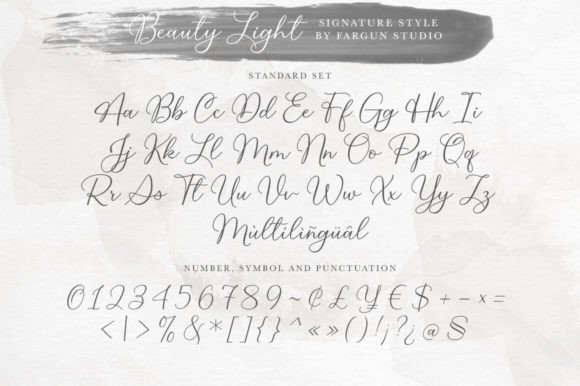 Beauty Light
SIGNATURE STYLE
BY FARGUN STUDIO
STANDARD SET
Aa Bb Cc Dd Ee Ff Gg Hh Ii
Jj Kk Ll Mm Nn Oo Pp Qq
Rr Ss Tt Uu Vv Ww Xx Yy Zz
Mùltiliñgüâl
NUMBER, SYMBOL AND PUNCTUATION
0 1 2 3 4 5 6 7 8 9 ~ ¢ £ ¥ € $ + - × =
< | > % & * [ ] { } ^ « » ( ) ! ¡ ? ¿ @ S